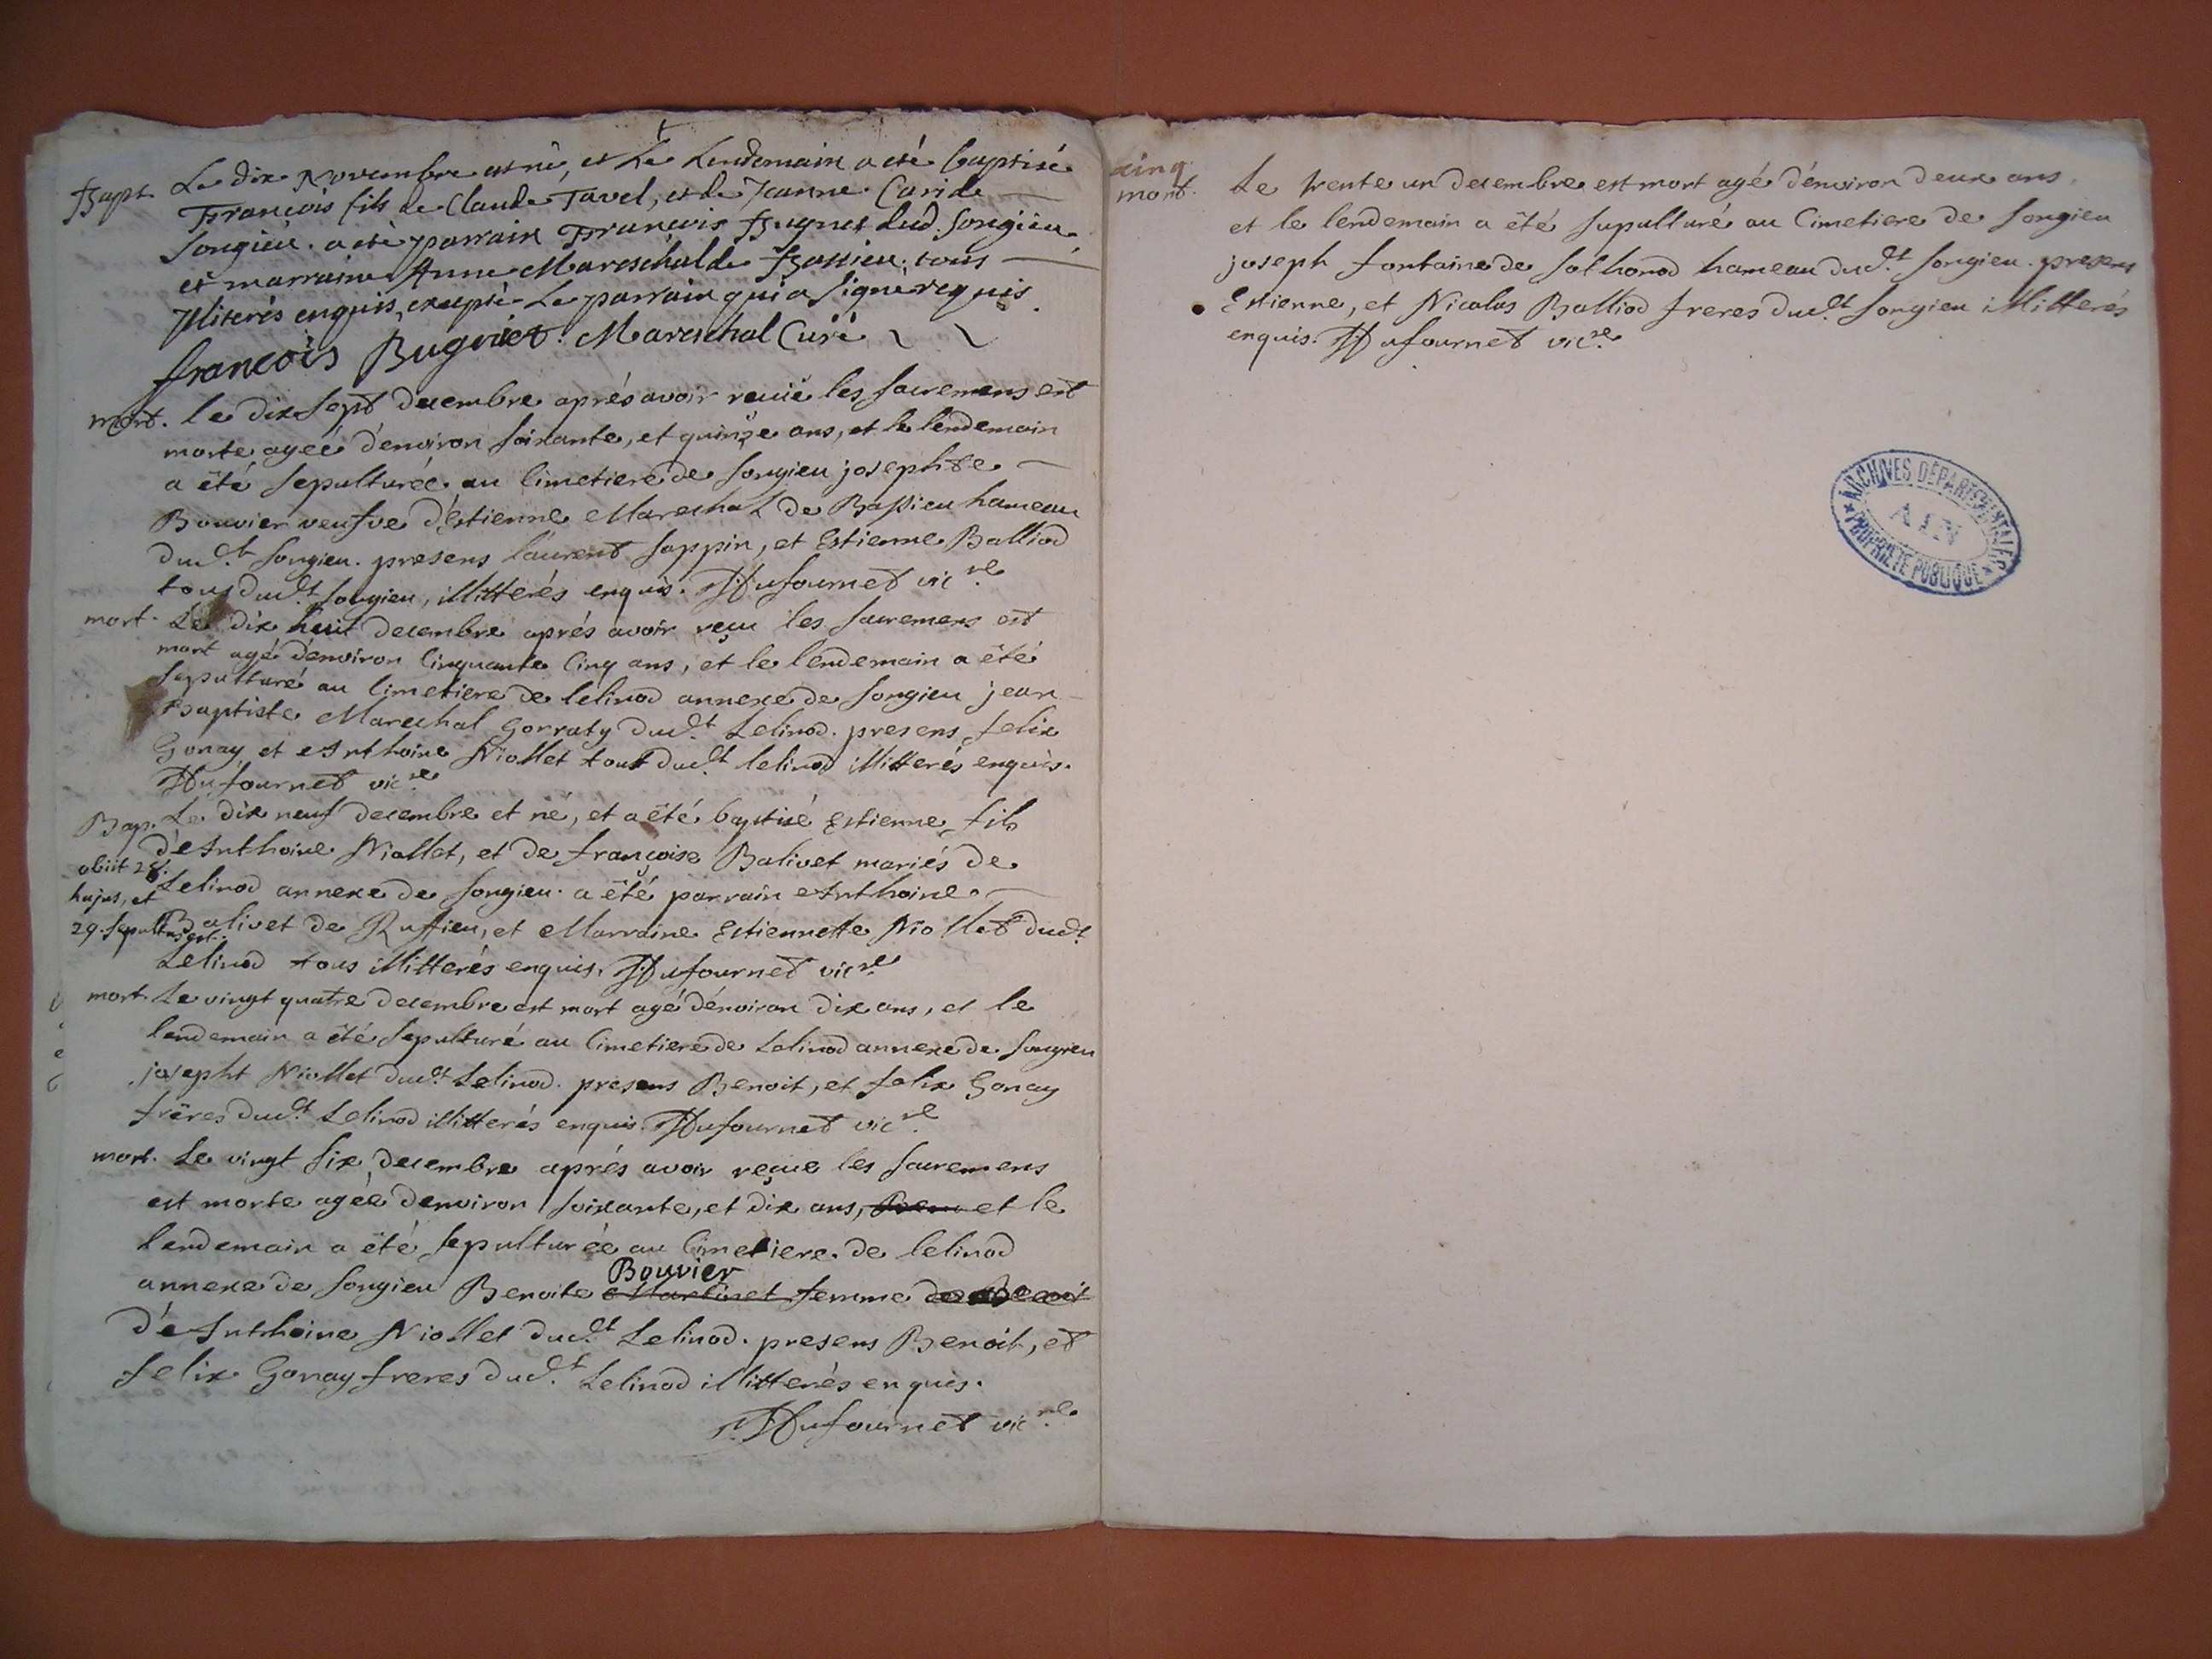 Bapt. Le dix Novembre est né, et Le Lendemain a eté baptisé
François fils de Claude Tavel, et de Jeanne Carid
Songieu. a eté parrain François Bugniet dud. Songieu,
et marraine Anne Mareschal de Bassieu; tous
Illiterés enquis, excepté Le parrain qui a signé requis.
francois Bugniet. Mareschal Curé
mort. le dix sept decembre aprés avoir reçüe les sacremens est
morte agée d'environ soixante, et quinze ans, et le lendemain
a êté sepulturée au Cimetiere de Songieu josephte
Bouvier veufve d'éstienne Mareschal de Bassieu hameau
dud.t Songieu. presens laurent sappin, et Estienne Balliod
tous dud.t Songieu, illitterés enquis. Dufournet vic.re
mort. Le dix huit decembre aprés avoir reçu les sacremens est
mort agé d'environ Cinquante Cinq ans, et le lendemain a êté
sepulturé au Cimetiere de lelinod annexe de Songieu jean
Baptiste Mareschal Gorraty dud.t Lelinod. presens felix
Gonay et Anthoine Niollet tous dud.t lelinod illitterés enquis.
Dufournet vic.re
Bap. Le dix neuf decembre et né, et a êté baptisé Estienne fils
d'Anthoine Niollet, et de françoise Balivet mariés de
obiit 28.
Lelinod annexe de Songieu. a êté parrain Anthoine
hujus, et
Balivet de Ruffieu, et Marraine Estiennette Niollet dud.t
29. sepultus est.
Lelinod tous illitterés enquis. Dufournet vic.re
mort. Le vingt quatre decembre est mort agé d'environ dix ans, et le
lendemain a êté sepulturé au Cimetiere de Lelinod annexe de Songieu
josepht Niollet dud.t Lelinod. presens Benoit, et felix Gonay
frêres dud.t Lelinod illitterés enquis. Dufournet vic.re
mort. Le vingt six decembre aprés avoir reçue les sacremens
est morte agée d'environ soixante, et dix ans, et le
lendemain a êté sepulturée au Cimetiere de lelinod
Bouvier
annexe de Songieu Benoite Martinet femme de Benoit
d'Anthoine Niollet dud.t Lelinod. presens Benoit, et
felix Gonay freres dud.t Lelinod illitterés enquis.
Dufournet vic.re
cinq
mort. Le trente un decembre est mort agé d'environ deux ans
et le lendemain a êté supulturé au Cimetiere de Songieu
joseph fontaine de sothonod hameau dud.t Songieu. presens
Estienne, et Nicolas Balliod freres dud.t Songieu illitterés
enquis. Dufournet vic.re
ARCHIVES DÉPARTEMENTALES
AIN
PROPRIÉTÉ PUBLIQUE